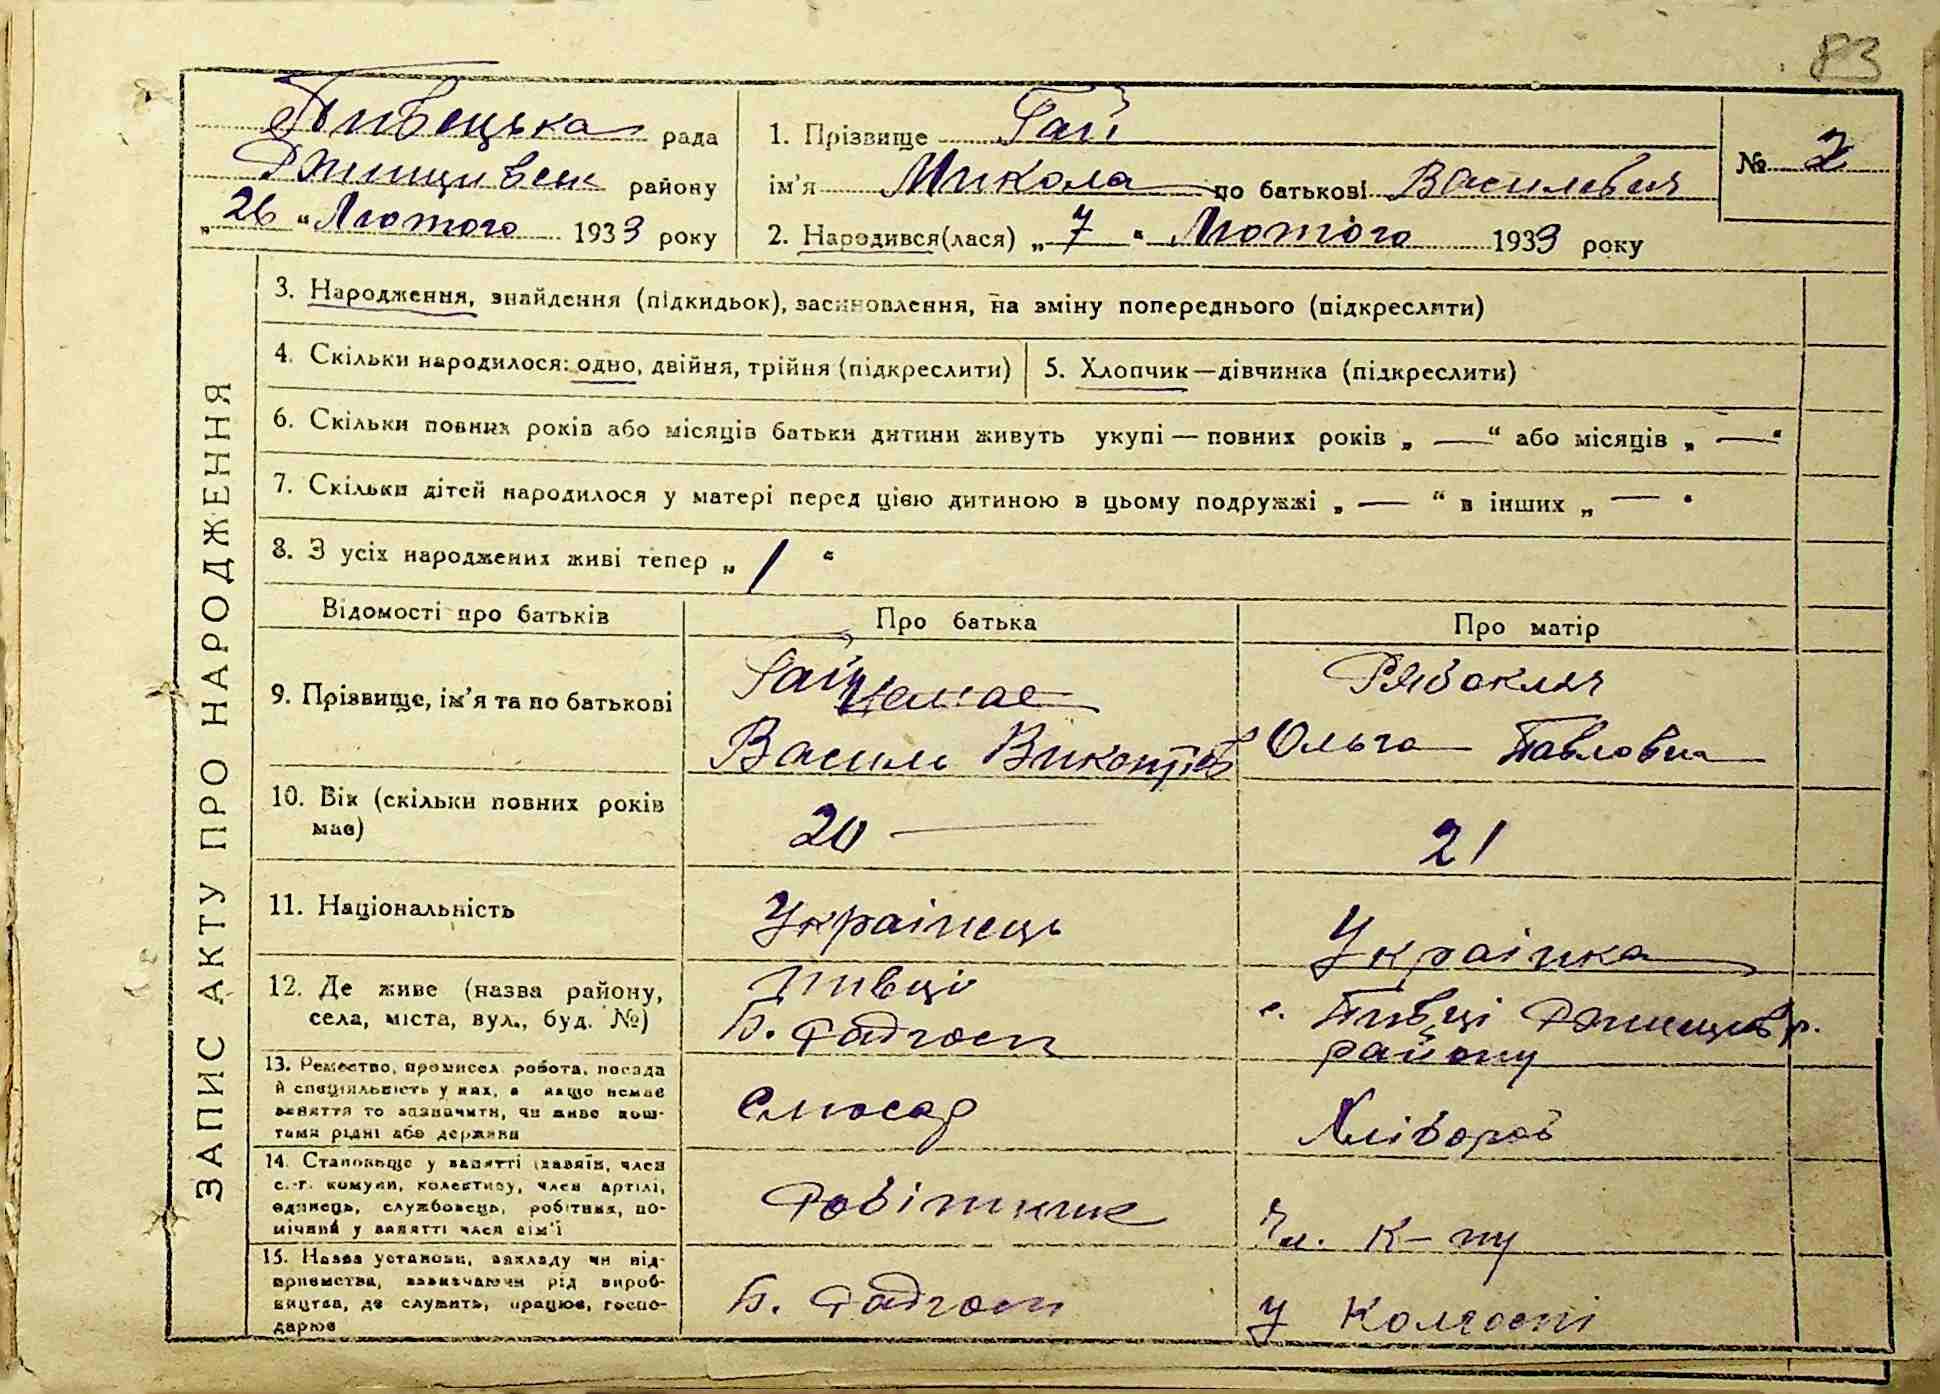 83
Пивецька рада
Ржищивськ району
„26“ Лютого 1933 року
1. Прізвище Гай
ім'я Микола по батькові Василевич
№ 2
2. Народився(лася) „7“ Лютого 1933 року
ЗАПИС АКТУ ПРО НАРОДЖЕННЯ
3. Народження, знайдення (підкидьок), засиновлення, на зміну попереднього (підкреслити)
4. Скільки народилося: одно, двійня, трійня (підкреслити)
5. Хлопчик—дівчинка (підкреслити)
6. Скільки повних років або місяців батьки дитини живуть укупі — повних років „ — “ або місяців „ — “
7. Скільки дітей народилося у матері перед цією дитиною в цьому подружжі „ — “ в інших „ — “
8. З усіх народжених живі тепер „ 1 “
Відомості про батьків
Про батька
Про матір
9. Прізвище, ім'я та по батькові
Гай
Василь
Рябокляч
Ольга Павловна
10. Вік (скільки повних років
має)
20 —
21
11. Національність
Українець
Українка
12. Де живе (назва району,
села, міста, вул., буд. №)
Пивці
Б. Радгосп
с. Пивці Ржищів р.
району
13. Ремество, промисел, робота, посада
й спеціяльність у них, а якщо немає
заняття то зазначити, чи живе кош-
тами рідні або держави
Слюсар
Хлібороб
14. Становище у занятті (хазяїн, член
с.-г. комуни, колективу, член артілі,
одинець, службовець, робітник, по-
мічний у занятті член сім'ї
Робітник
Чл. К-пу
15. Назва установи, закладу чи під-
приємства, зазначаючи рід вироб-
ництва, де служить, працює, госпо-
дарює
Б. Радгосп
У Колгоспі